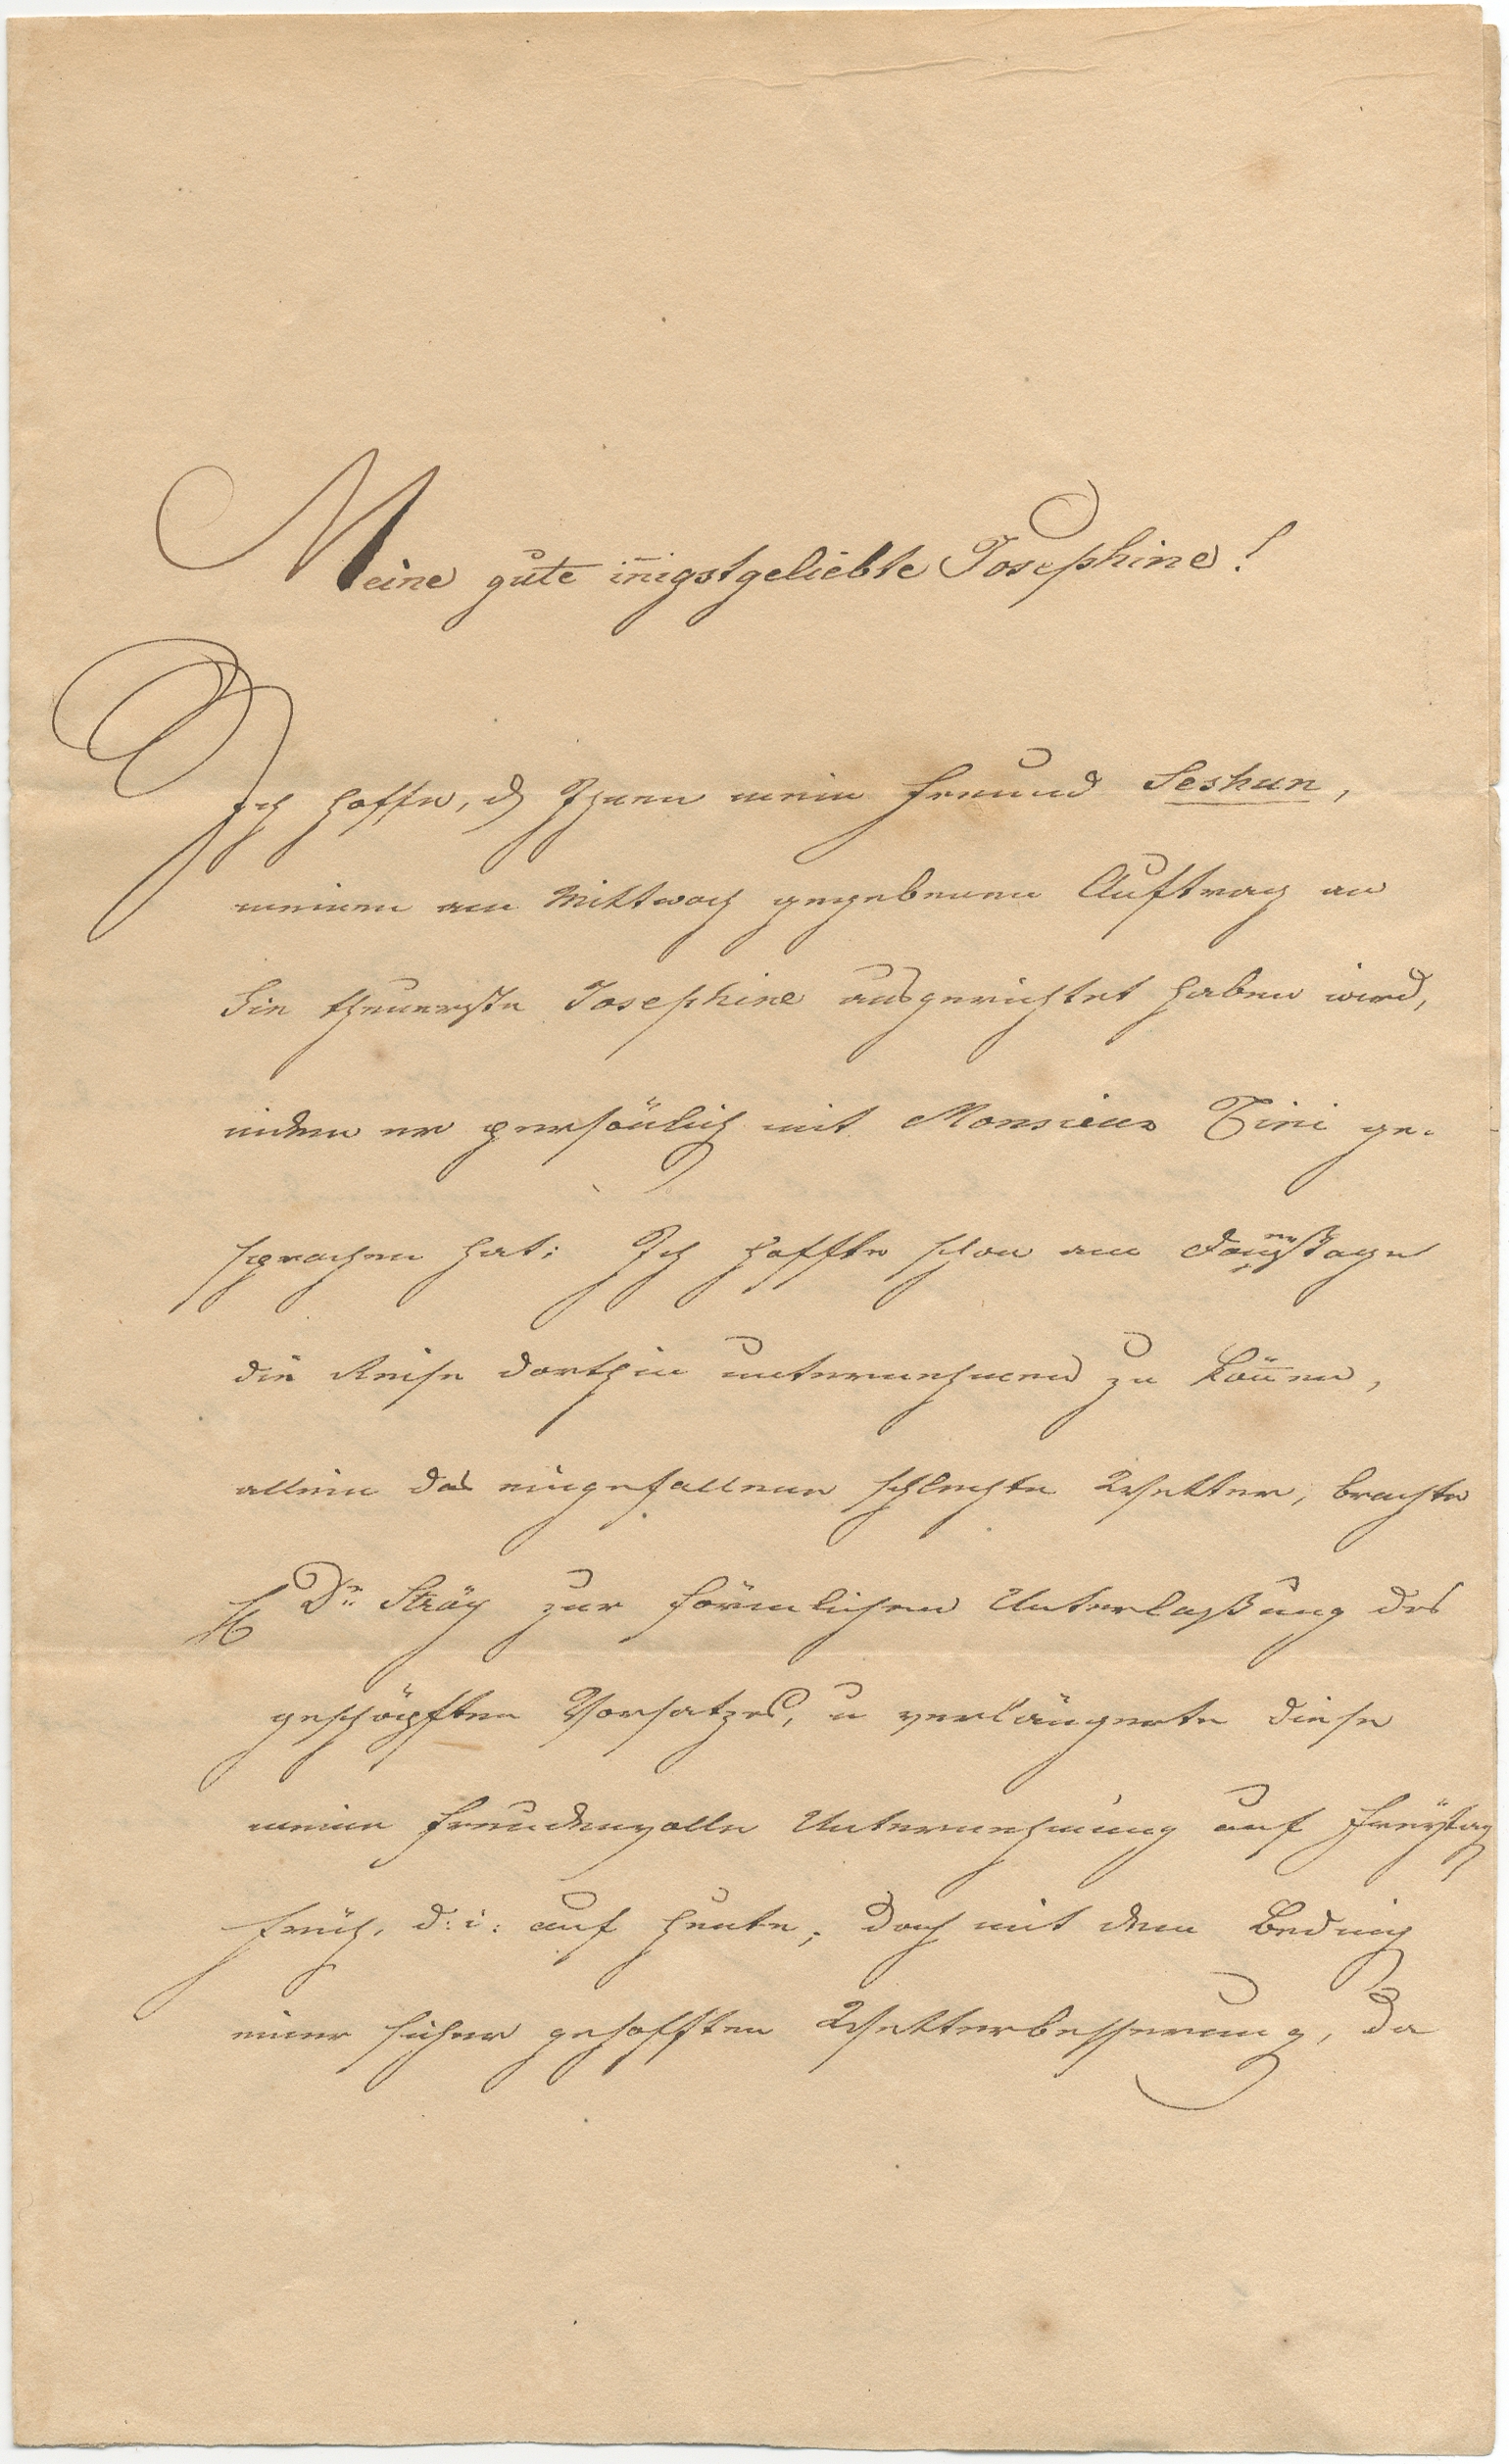 Meine gute iñigstgeliebte Josephine!
Ich hoffe, dß Ihnen mein Freund Seshun,
meinen am Mittwoch gegebenen Auftrag an
Sie theuerste Josephine ausgerichtet haben wird,
indem er persönlich mit Monsieur Tini ge-
sprochen hat. Ich hoffte schon am Donnerstage
die Reise dorthin unternehmen zu köñen,
allein das eingefallene schlechte Wetter, brachte
H Dr. zur förmlichen Unterlaßung des
geschöpften Vorsatzes, u verlängerte diese
meine freudenvolle Unternehmung auf Freÿtag
früh, d: i: auf heute, doch mit dem Beding
einer sicher gehofften Wetterbesserung, da